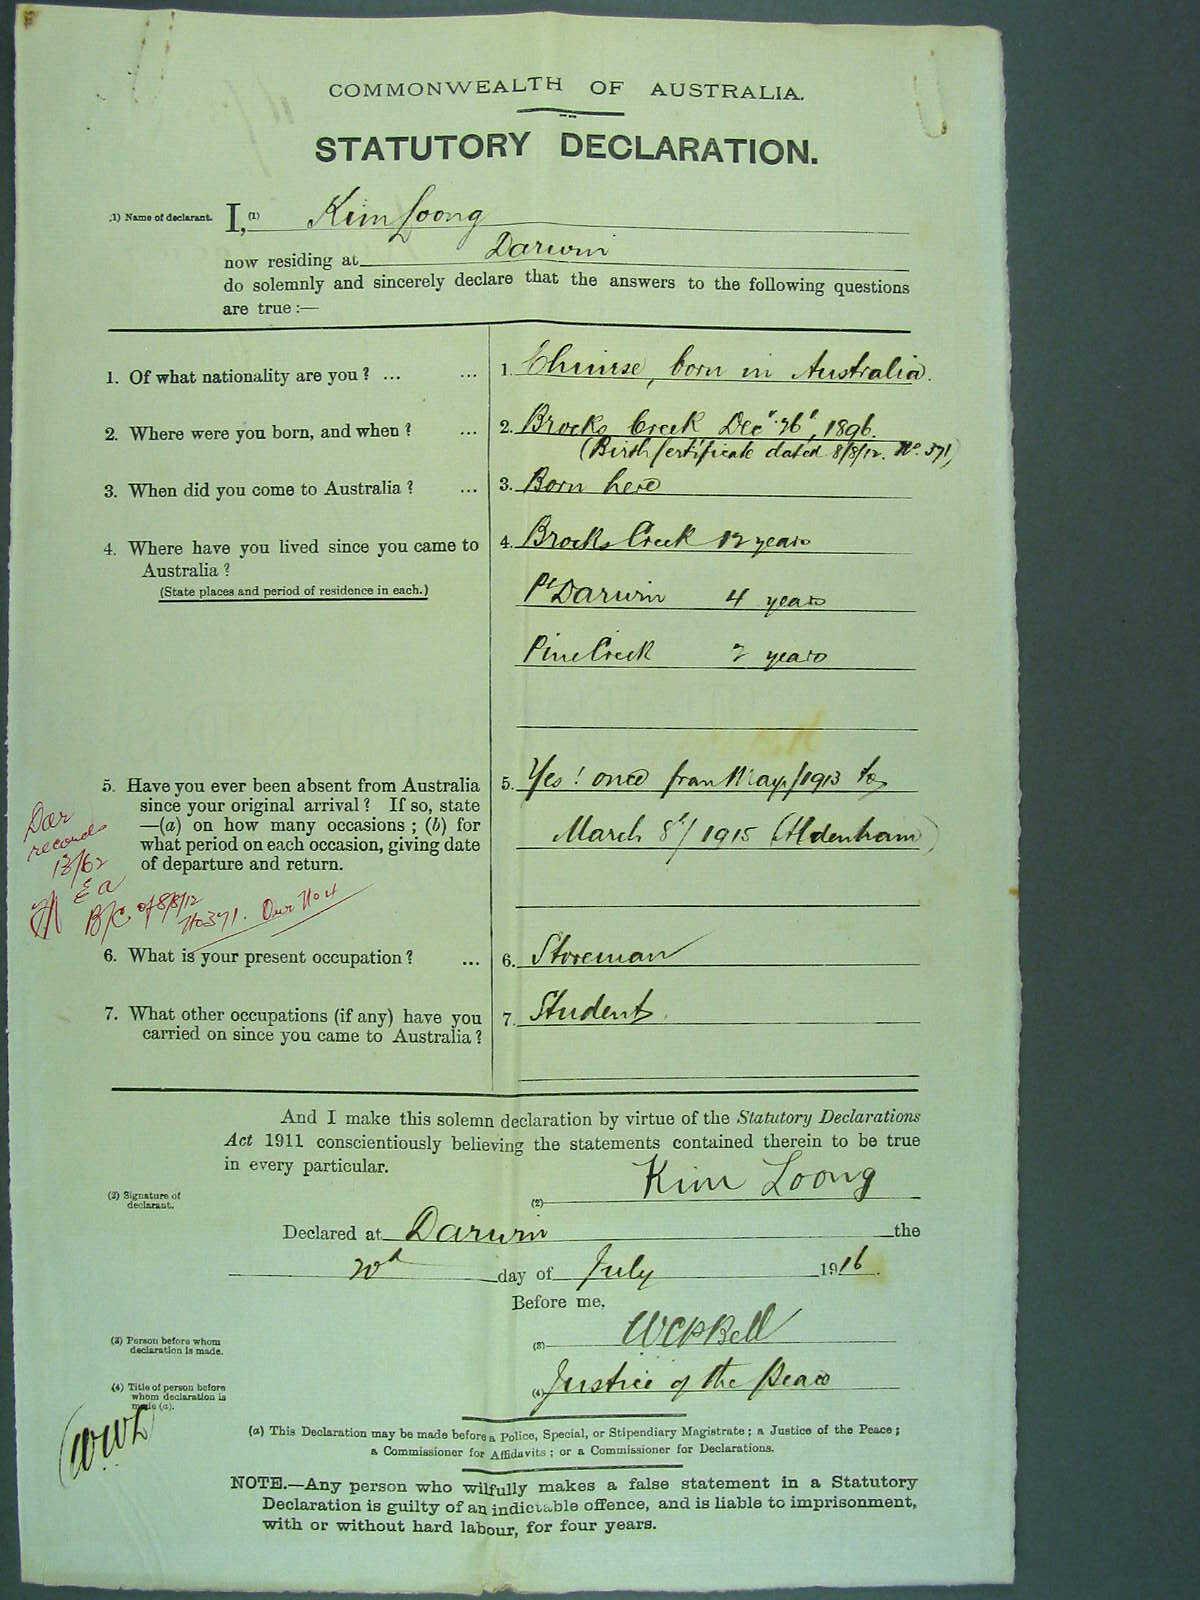 COMMONWEALTH OF AUSTRALIA.
STATUTORY DECLARATION.
(1) Name of declarant. I,(1) Kim Loong
now residing at Darwin
do solemnly and sincerely declare that the answers to the following questions
are true :—
1. Of what nationality are you ? ... ... 1. Chinese, born in Australia.
2. Where were you born, and when ? ... 2. Brocks Creek Decr 26t, 1896.
(Birth Certificate dated 8/8/12. No. 371)
3. When did you come to Australia ? ... 3. Born here
4. Where have you lived since you came to 4. Brocks Creek 12 years
Australia ?
(State places and period of residence in each.) Pt Darwin 4 years
Pine Creek 2 years
5. Have you ever been absent from Australia 5. Yes! once from May/1913 to
since your original arrival ? If so, state
—(a) on how many occasions ; (b) for
what period on each occasion, giving date March 8t/1915 (Aldenham)
of departure and return.
Dar
records
13/62
& a
B/C of 8/8/12
No 371. Our No 4
6. What is your present occupation ? ... 6. Storeman
7. What other occupations (if any) have you 7. Student.
carried on since you came to Australia ?
And I make this solemn declaration by virtue of the Statutory Declarations
Act 1911 conscientiously believing the statements contained therein to be true
in every particular.
(2) Signature of
declarant. (2) Kim Loong
Declared at Darwin the
20th day of July 1916.
Before me,
(3) Person before whom
declaration is made. (3) WCPBell
(4) Title of person before
whom declaration is
made (a). (4) Justice of the Peace
(a) This Declaration may be made before a Police, Special, or Stipendiary Magistrate ; a Justice of the Peace ;
a Commissioner for Affidavits ; or a Commissioner for Declarations.
NOTE.—Any person who wilfully makes a false statement in a Statutory
Declaration is guilty of an indictable offence, and is liable to imprisonment,
with or without hard labour, for four years.